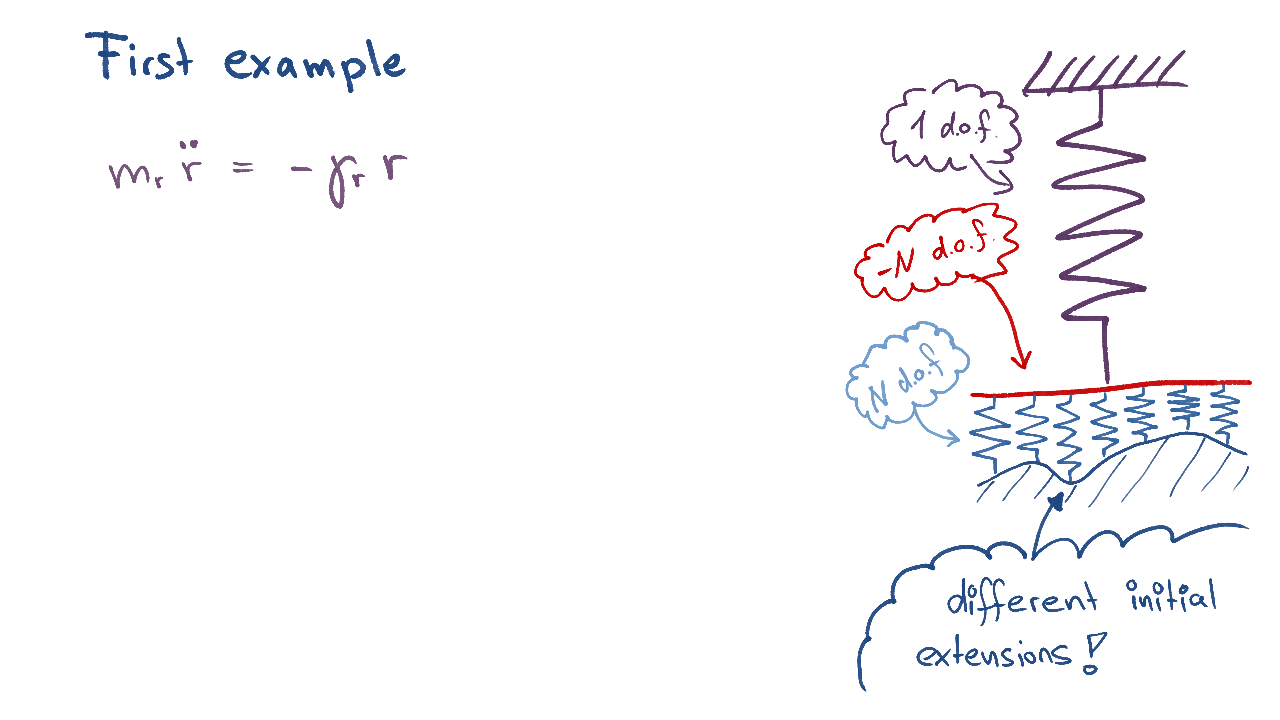 First example
m_r r̈ = - γ_r r
1 d.o.f.
-N d.o.f.
N d.o.f
different initial
extensions!